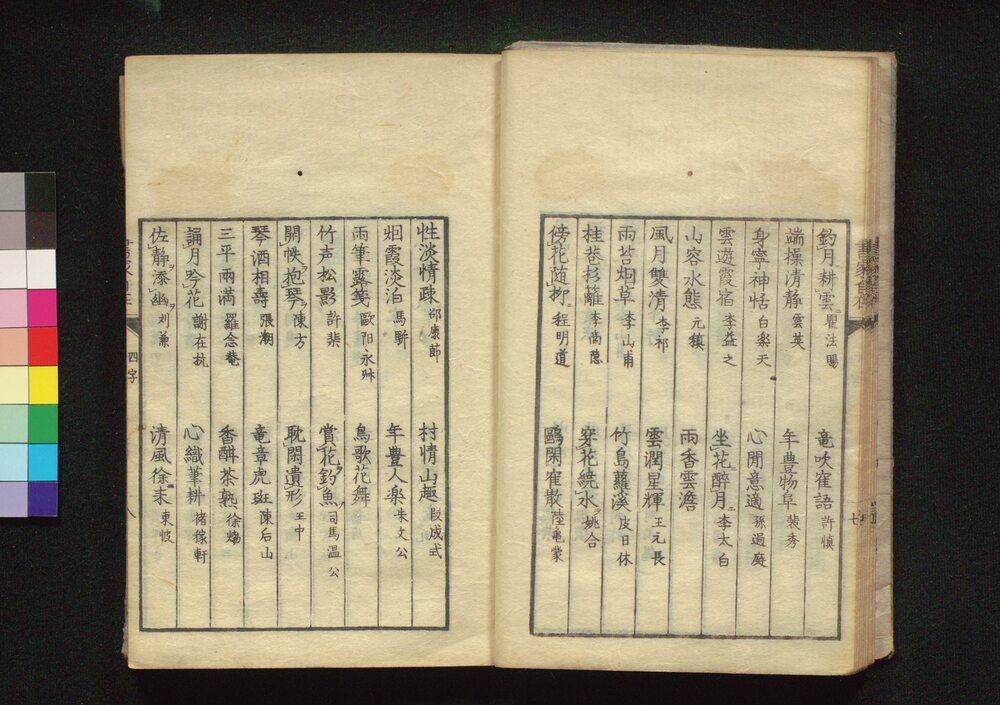 釣月耕雲 瞿法賜 竜吹寉語 許慎
端操清静 雲英 年豊物阜 裴秀
身寧神恬 白楽天 心閒意適 孫過庭
雲遊霞宿 李益之 坐花酔月 李太白
山容水態 元稹 雨香雲澹
風月雙清 李祁 雲潤星輝 王元長
雨苔烟草 李山甫 竹島蘿溪 皮日休
桂巷杉籬 李尚隠 穿花繞水 姚合
傍花随柳 程明道 鷗閑寉散 陸亀蒙
性淡情疎 邵康節 村情山趣 段成式
烟霞淡泊 馬駢 年豊人楽 朱文公
雨筆露箋 歐阳永叔 鳥歌花舞
竹声松影 許棐 賞花釣魚 司馬温公
開帙抱琴 陳方 耽閑遺形 王中
琴酒相壽 張潮 竜章虎斑 陳后山
三平両満 羅念菴 香醂茶熟 徐㶿
誦月吟花 謝在杭 心織筆耕 禇稼軒
佐静添幽 刘兼 清風徐来 東坡
四字
八
七